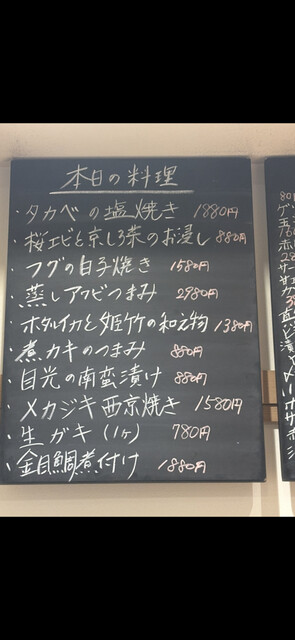 本日の料理
・タカベの塩焼き 1880円
・桜エビと京しろ菜のお浸し 880円
・フグの白子焼き 1580円
・蒸しアワビつまみ 2980円
・ホタルイカと姫竹の和え物 1380円
・煮カキのつまみ 880円
・目光の南蛮漬け 880円
・メカジキ西京焼き 1580円
・生ガキ(1ヶ) 780円
・金目鯛煮付け 1880円